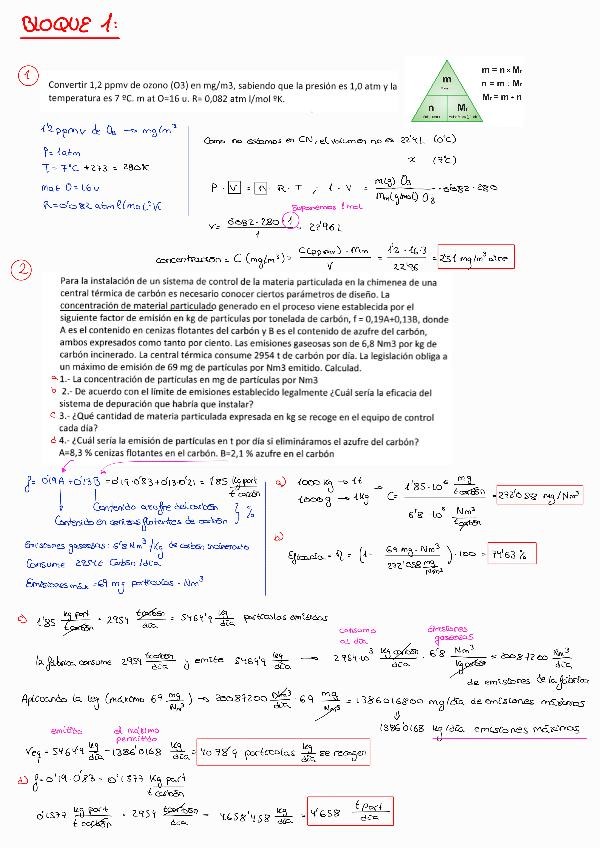 BLOQUE 1:
1
Convertir 1,2 ppmv de ozono (O3) en mg/m3, sabiendo que la presión es 1,0 atm y la
temperatura es 7 ºC. m at O=16 u. R= 0,082 atm l/mol ºK.
m
n
Mr
m = n × Mr
n = m : Mr
Mr = m ÷ n
1'2 ppmv de O3 → mg/m³
P = 1 atm
T = 7ºC + 273 = 280K
mat O = 16u
R = 0'082 atm l/mol ºK
Como no estamos en CN, el volumen no es 22'4L (0ºC)
x (7ºC)
P · V = n · R · T , 1 · V = m(g) O3 / Mm(g/mol) O3 · 0'082 · 280
Suponemos 1 mol
V = 0'082 · 280 · 1 / 1 = 22'96L
concentración = C (mg/m³) = C(ppmv) · Mm / V = 1'2 · 16·3 / 22'96 = 2'51 mg/m³ aire
2
Para la instalación de un sistema de control de la materia particulada en la chimenea de una
central térmica de carbón es necesario conocer ciertos parámetros de diseño. La
concentración de material particulado generado en el proceso viene establecida por el
siguiente factor de emisión en kg de partículas por tonelada de carbón, f = 0,19A+0,13B, donde
A es el contenido en cenizas flotantes del carbón y B es el contenido de azufre del carbón,
ambos expresados como tanto por ciento. Las emisiones gaseosas son de 6,8 Nm3 por kg de
carbón incinerado. La central térmica consume 2954 t de carbón por día. La legislación obliga a
un máximo de emisión de 69 mg de partículas por Nm3 emitido. Calculad.
a 1.- La concentración de partículas en mg de partículas por Nm3
b 2.- De acuerdo con el límite de emisiones establecido legalmente ¿Cuál sería la eficacia del
sistema de depuración que habría que instalar?
c 3.- ¿Qué cantidad de materia particulada expresada en kg se recoge en el equipo de control
cada día?
d 4.- ¿Cuál sería la emisión de partículas en t por día si elimináramos el azufre del carbón?
A=8,3 % cenizas flotantes en el carbón. B=2,1 % azufre en el carbón
f = 0'19A + 0'13B = 0'19 · 0'83 + 0'13 · 0'21 = 1'85 kg part / t carbón
Contenido azufre del carbón
Contenido en cenizas flotantes de carbón } %
Emisiones gaseosas: 6'8 Nm³/Kg de carbón incinerado
Consume 2954 t Carbón /día
Emisiones máx = 69 mg partículas · Nm³
a) 1000 kg → 1t
1000g → 1kg
C = 1'85 · 10⁶ mg / t carbón / 6'8 · 10³ Nm³ / t carbón = 272'058 mg/Nm³
b)
Eficacia = η = (1 - 69 mg · Nm³ / 272'058 mg/Nm³) · 100 = 74'63 %
c) 1'85 kg part / t carbón · 2954 t carbón / día = 5464'9 kg / día partículas emitidas
consumo al día
emisiones gaseosas
la fábrica consume 2954 t carbón / día y emite 5464'9 kg / día → 2954·10³ kg carbón / día · 6'8 Nm³ / kg carbón = 20087200 Nm³ / día
de emisiones de la fábrica
Aplicando la ley (máximo 69 mg / Nm³) → 20087200 Nm³ / día · 69 mg / Nm³ = 1386016800 mg/día de emisiones máximas
1386'0168 kg/día emisiones máximas
emitido
el máximo permitido
5464'9 kg / día - 1386'0168 kg / día = 4078'9 partículas kg / día se recogen
d) f = 0'19 · 0'83 = 0'1577 Kg part / t carbón
0'1577 kg part / t carbón · 2954 t carbón / día = 4658'458 kg / día = 4'658 t part / día